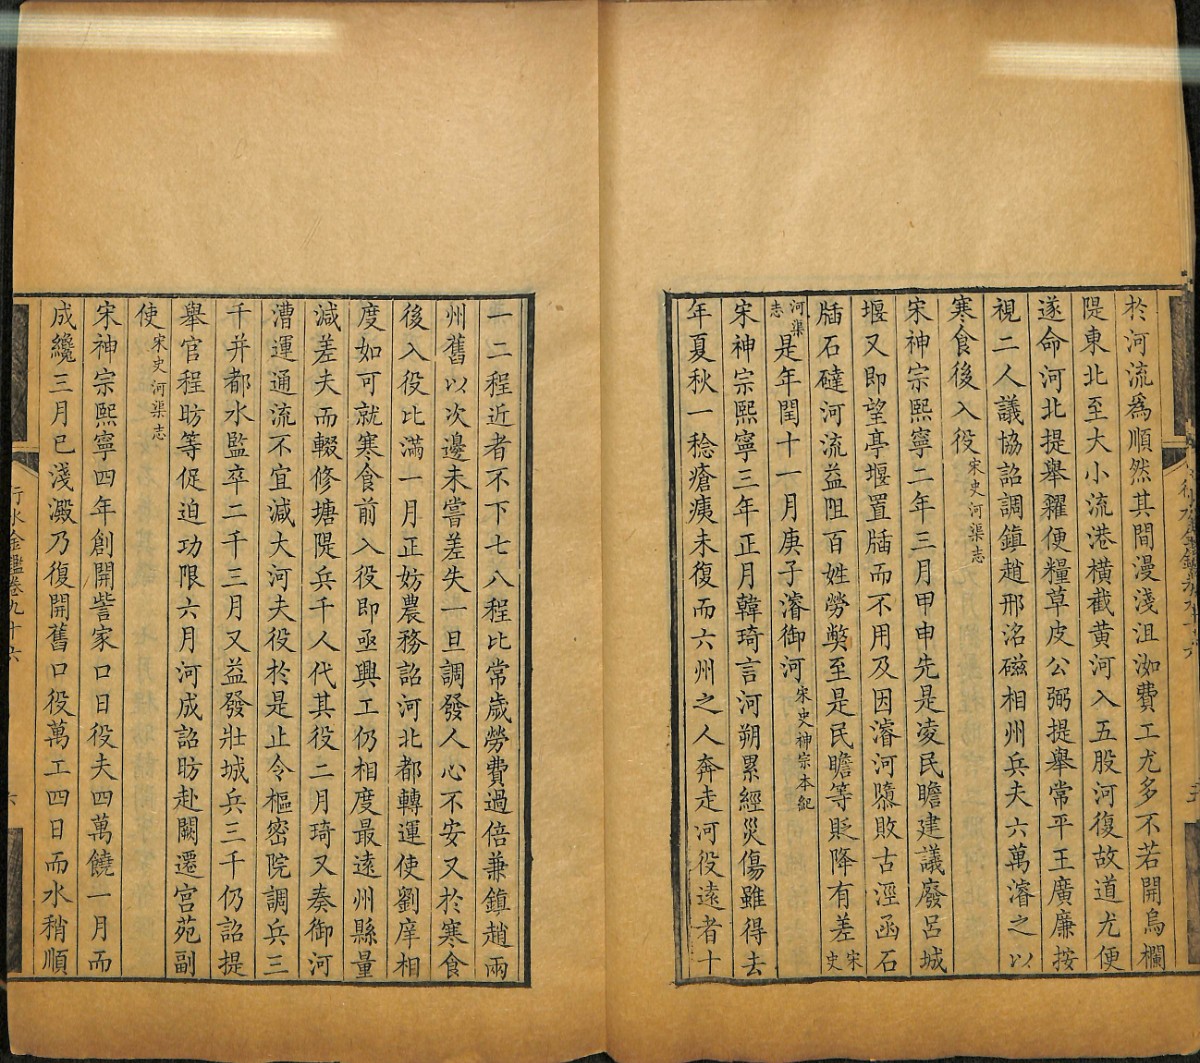 於河流爲順然其間漫淺沮洳費工尤多不若開烏欄
隄東北至大小流港橫截黄河入五股河復故道尤便
遂命河北提舉糴便糧草皮公弼提舉常平王廣廉按
視二人議協詔調鎮趙邢洺磁相州兵夫六萬濬之以
寒食後入役宋史河渠志
宋神宗熙寧二年三月甲申先是凌民瞻建議廢呂城
堰又即望亭堰置牐而不用及因濬河隳敗古涇函石
牐石䃮河流益阻百姓勞獘至是民瞻等貶降有差宋史
河渠志是年閏十一月庚子濬御河宋史神宗本紀
宋神宗熙寧三年正月韓琦言河朔累經災傷雖得去
年夏秋一稔瘡痍未復而六州之人奔走河役遠者十
一二程近者不下七八程比常歲勞費過倍兼鎮趙兩
州舊以次邊未嘗差失一旦調發人心不安又於寒食
後入役比滿一月正妨農務詔河北都轉運使劉庠相
度如可就寒食前入役即亟興工仍相度最遠州縣量
減差夫而輟修塘隄兵千人代其役二月琦又奏御河
漕運通流不宜減大河夫役於是止令樞密院調兵三
千并都水監卒二千三月又益發壯城兵三千仍詔提
舉官程昉等促迫功限六月河成詔昉赴闕遷宫苑副
使宋史河渠志
宋神宗熙寧四年創開訾家口日役夫四萬饒一月而
成纔三月已淺澱乃復開舊口役萬工四日而水稍順
行水金鑑卷九十六
六